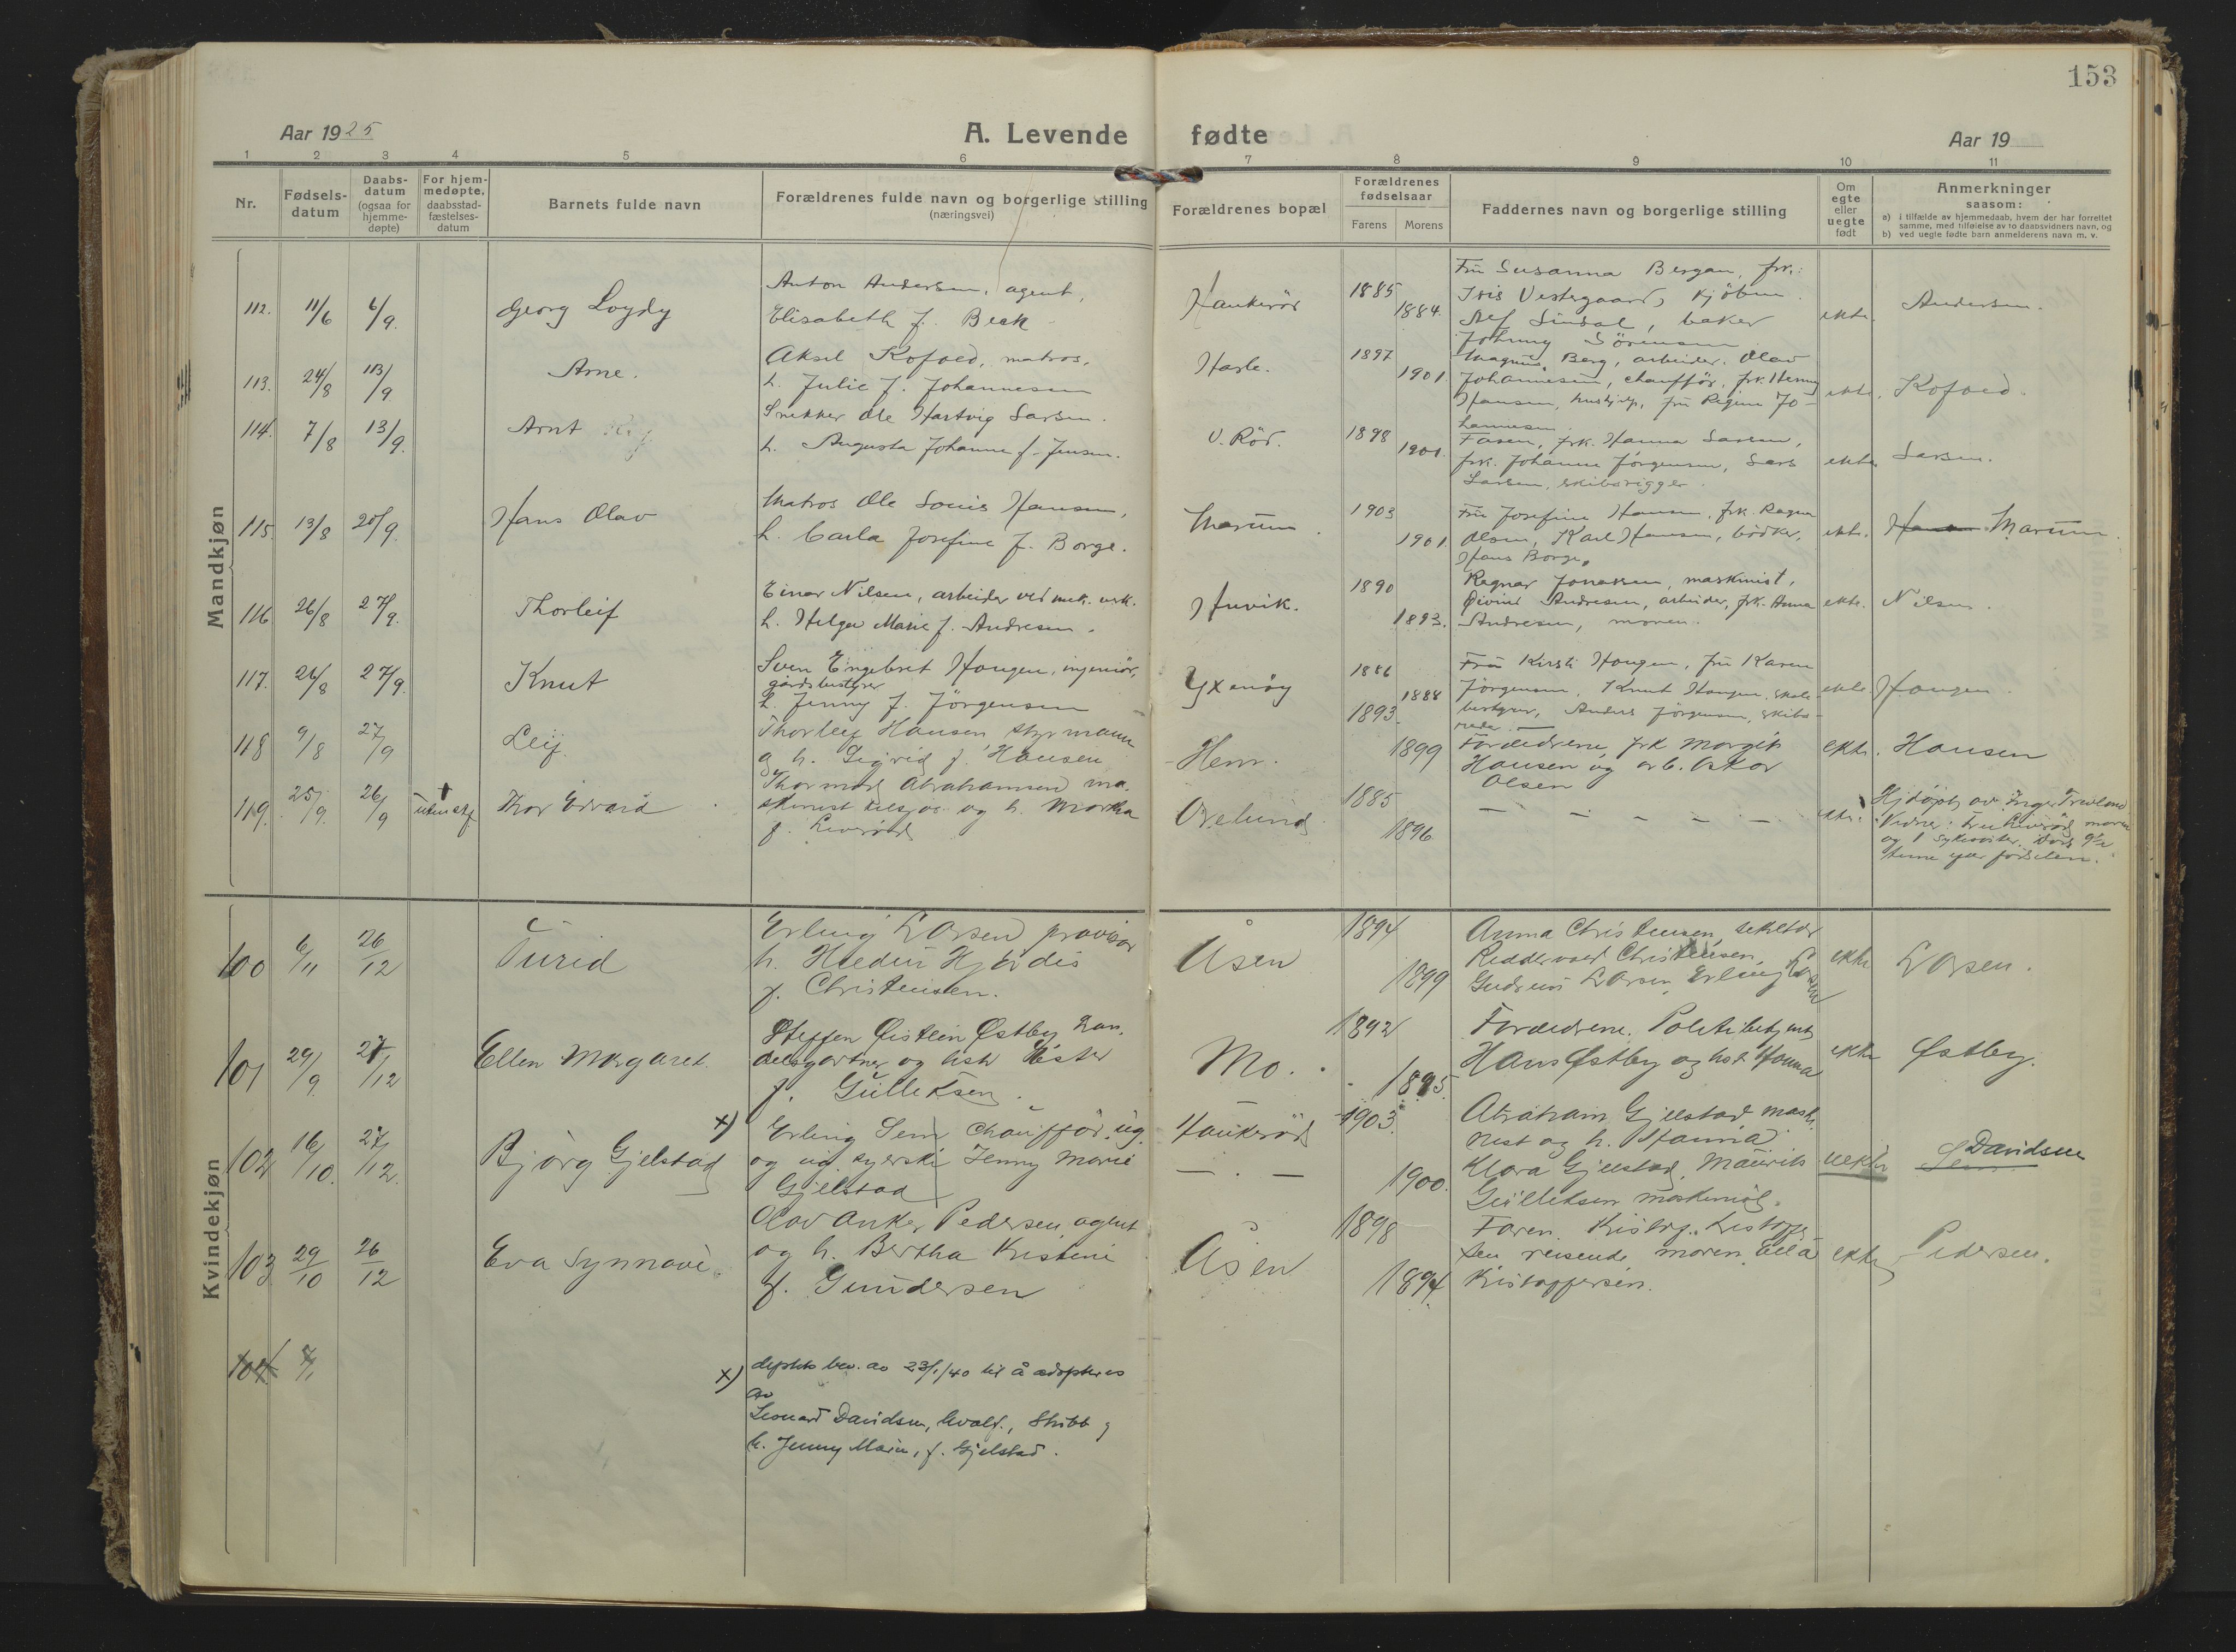 153
Aar 1925
A. Levende fødte
Aar 19
1 2 3 4 5 6 7 8 9 10 11
Nr.
Fødsels-
datum
Daabs-
datum
(ogsaa for
hjemme-
døpte)
For hjem-
medøpte,
daabsstad-
fæstelses-
datum
Barnets fulde navn
Forældrenes fulde navn og borgerlige stilling
(næringsvei)
Forældrenes bopæl
Forældrenes
fødselsaar
Farens Morens
Faddernes navn og borgerlige stilling
Om
egte
eller
uegte
født
Anmerkninger
saasom:
a) i tilfælde av hjemmedaab, hvem der har forrettet
samme, med tilføielse av to daabsvidners navn, og
b) ved uegte fødte barn anmelderens navn m. v.
Mandkjøn
112. 11/6 6/9. Georg Loydy
Anton Andersen, agent,
Elisabeth f. Beck
Haukerös
1885
1884.
Frü Susanna Bergan, frk.:
Iris Vestergaard, kjöbm.
Alf Lindal, baker
Johnny Sörensen
ekte.
Andersen.
113. 24/8 13/9 Arne.
Aksel Kofoed, matros,
h. Julie f. Johannesen
Hasle.
1897
1901.
Magnus Berg, arbeider. Olav
Johannesen, chauffør, frk. Henny
Hansen, hushjelp, frü Regine Jo-
hannesen.
ekte.
Kofoed.
114. 7/8 13/9. Arnt
Snekker Ole Hartvig Larsen.
h. Augusta Johanne f. Jensen.
V. Röd.
1898
1901.
Faren, frk. Hanna Larsen,
frk. Johanne Jörgensen, Lars
Larsen, skibsrigger.
ekte
Larsen.
115. 13/8 20/9. Hans Olav
Matros Ole Louis Hansen,
h. Carla Josefine f. Borge.
Marum.
1903
1901
Frü Josefine Hansen, frk. Ragna
Olsen, Karl Hansen, bödker,
Hans Borge.
ekte.
Marum.
116. 26/8 27/9. Thorleif
Einar Nilsen, arbeider ved mek. verk.
h. Helga Marie f. Andresen.
Huvik.
1890
1893.
Ragnar Jonassen, maskinist,
Øivind Andresen, arbeider, frk. Anna
Andresen, moren.
ekte.
Nilsen.
117. 26/8 27/9. Knut
Sven Engebret Haugen, ingeniör,
gårdsbestyrer
h. Jenny f. Jörgensen
Yxenöy
1886
1888
Frü Kirsti Haugen, frü Karen
Jörgensen, Knut Haugen, skole-
bestyrer, Anders Jörgensen, skibs-
reder.
ekte.
Haugen.
118 9/8 27/9 Leif.
Thorleif Hansen styrmann
og h. Sigrid f. Hansen
Hem.
1893.
1899
Forældrene, frk Margit
Hansen og arb. Oskar
Olsen
ekte.
Hansen
119. 25/9. 26/9 uten stf. Thor Edvard
Thormod Abrahamsen ma-
skinist og h. Martha
f. Liverød
Orelund
1885
1896
– – – – –
ekte.
Hjdøpt av Inger
Vidner:
og 1 sykesøster. Død
timer efter fødselen.
Kvindekjøn
100 6/11 26/12 Turid
Erling Larsen provisor
h. Hjørdis
f. Christensen.
Åsen
1894
1899
Anna Christensen, sekretær
Christensen,
Gudrun Larsen, Erling Larsen
ekte
Larsen.
101 29/9. 27/12 Ellen Margaret.
Steffen Øistein Østby han-
delsgartner og hstr Ester
f. Gulliksen.
Mo.
1892
1895.
Forældrene. Politibetjent
Hans Østby og hst. Hanna
ekte
Østby.
102 16/10. 27/12. Bjørg Gjelstad
x) Erling Sem chauffør, ug.
og ug. syerske Jenny Marie
Gjelstad
Haukerød
– . –
1903.
1900.
Abraham Gjelstad mask-
nist og h. Hanna
Klara Gjelstad, Maurits
Gulliksen maskinist.
uekte
Sem Davidsen
103 29/10 26/12 Eva Synnøve.
Olav Anker Pedersen agent
og h. Bertha Kristine
f. Gundersen
Åsen
1898
1894
Faren.
sen reisende, moren, Ella
Kristoffersen.
ekte
Pedersen.
104
x) bev. av 23/1/40 til å adopteres
av
Leonard Davidsen, hvalf., Stubb og
h. Jenny Marie, f. Gjelstad.